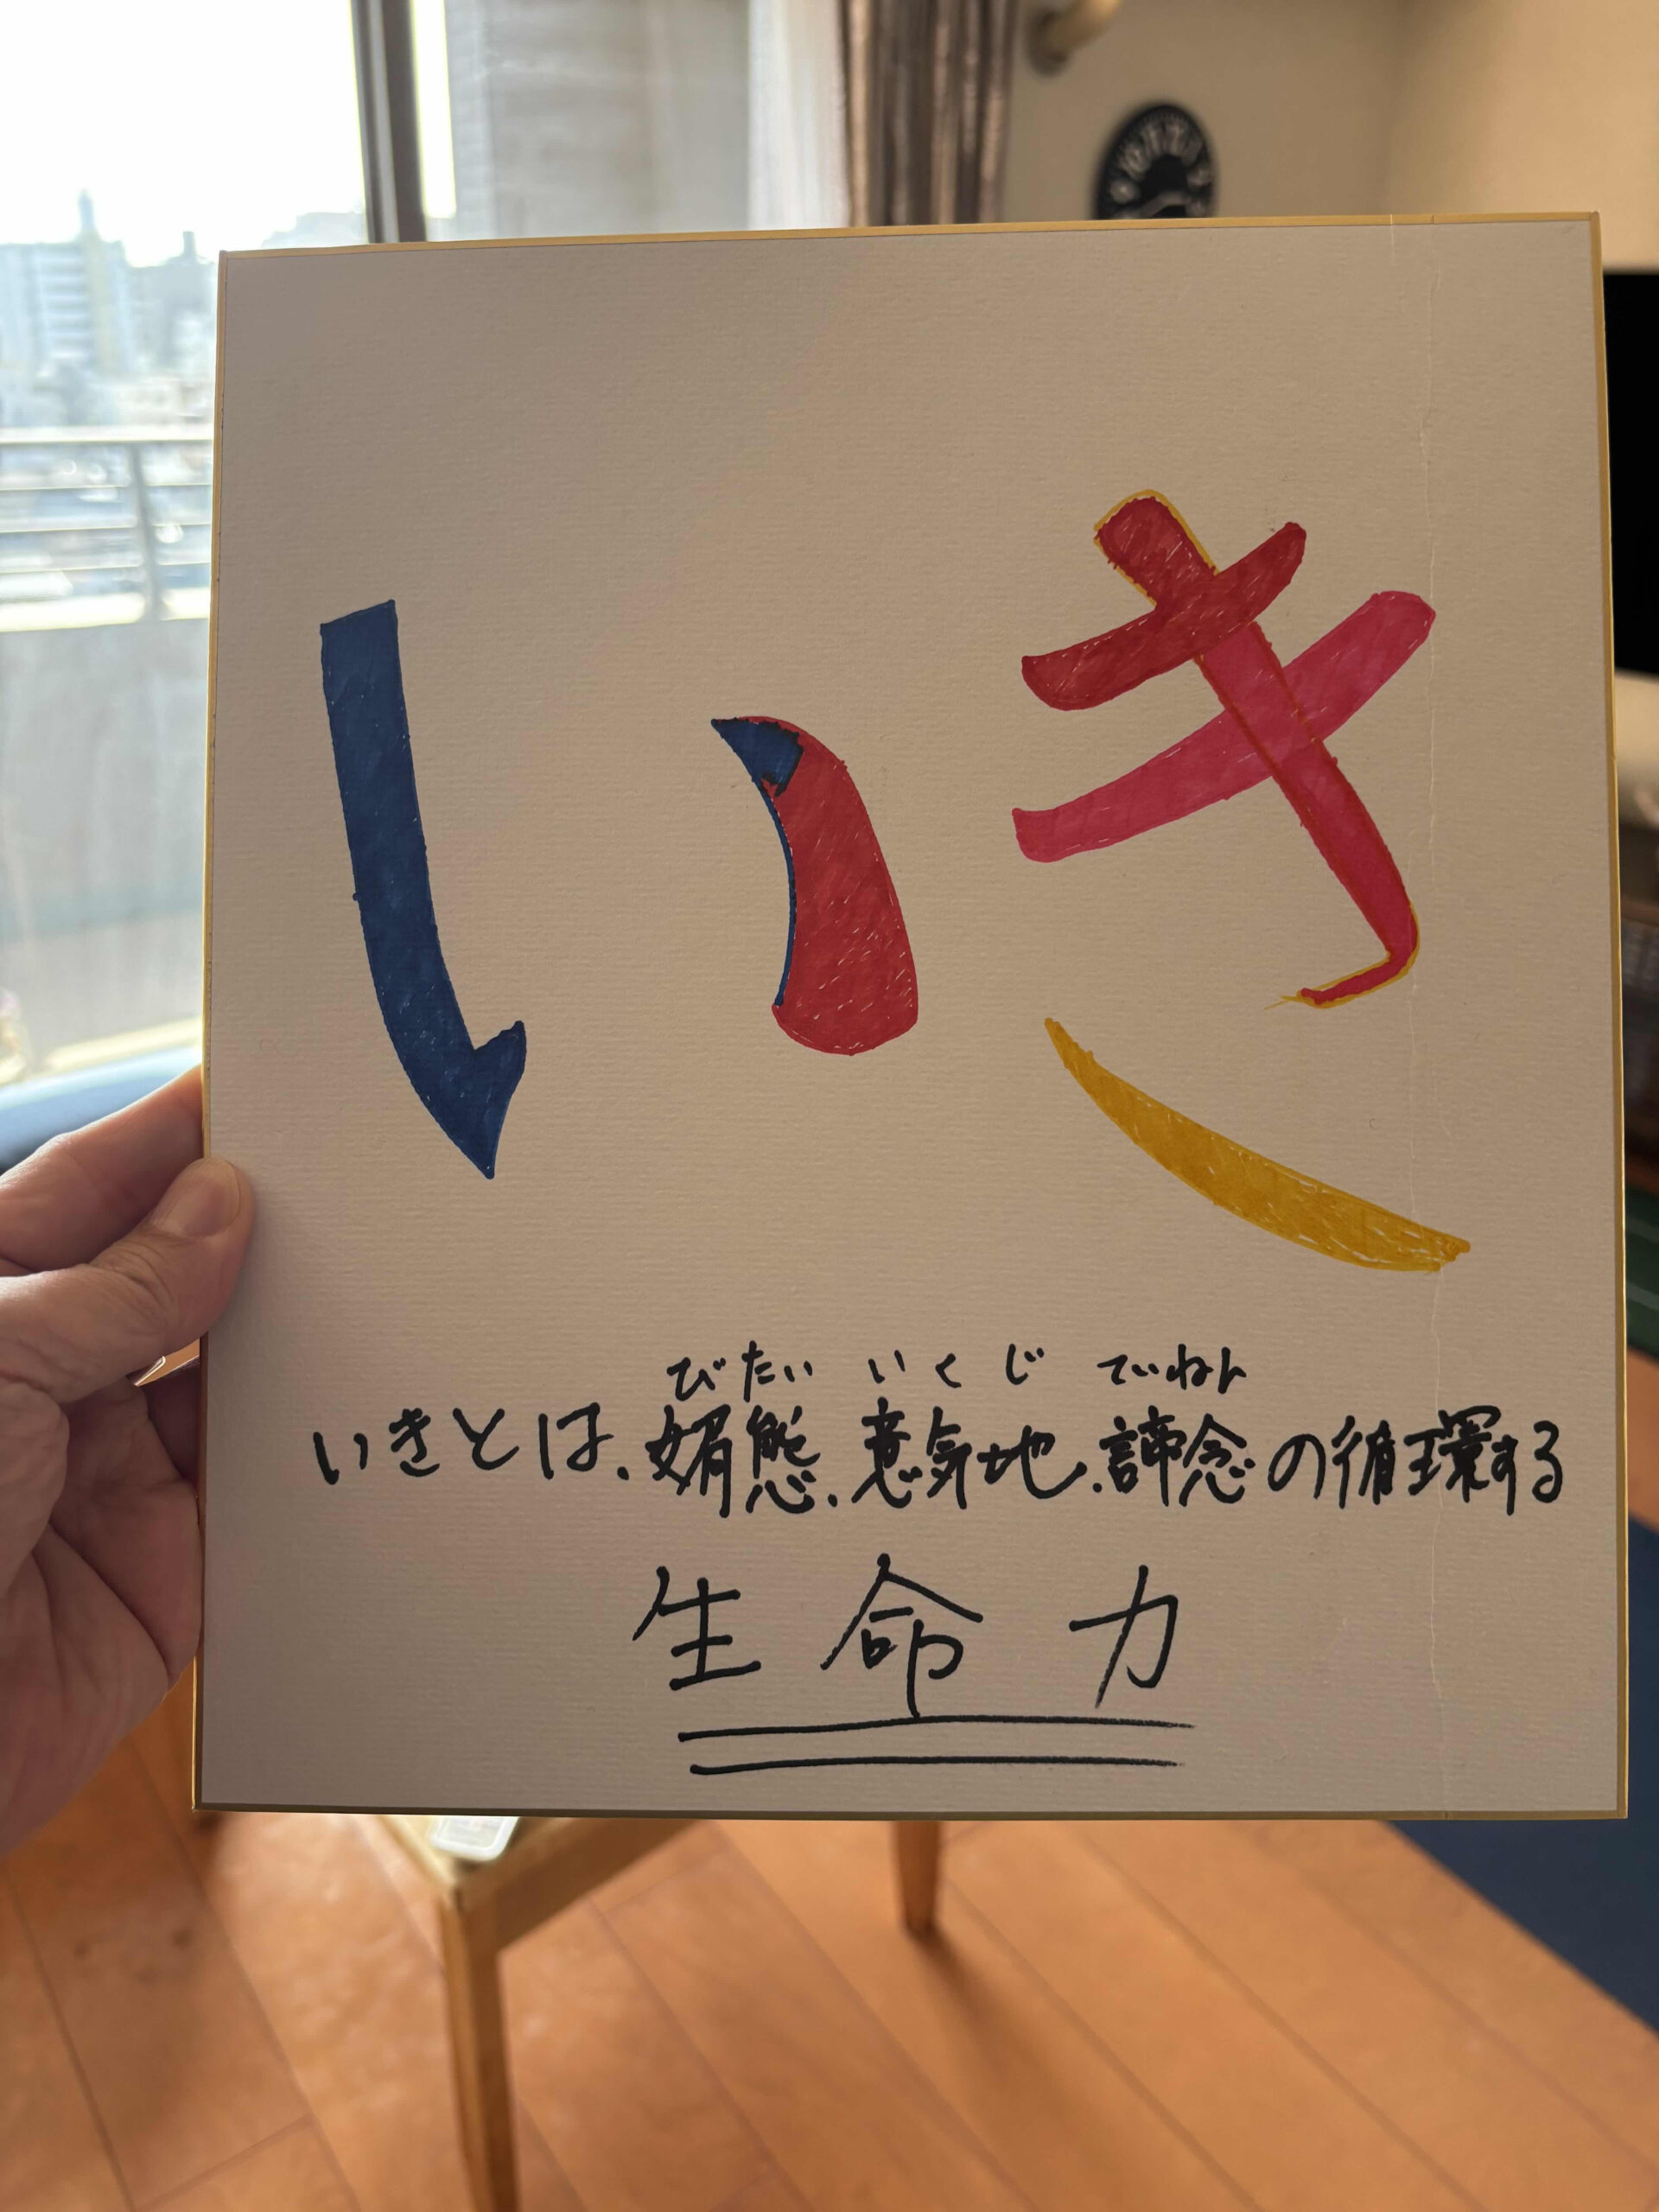 いき
びたい いくじ ていねん
いきとは、媚態、意気地、諦念の循環する
生命力